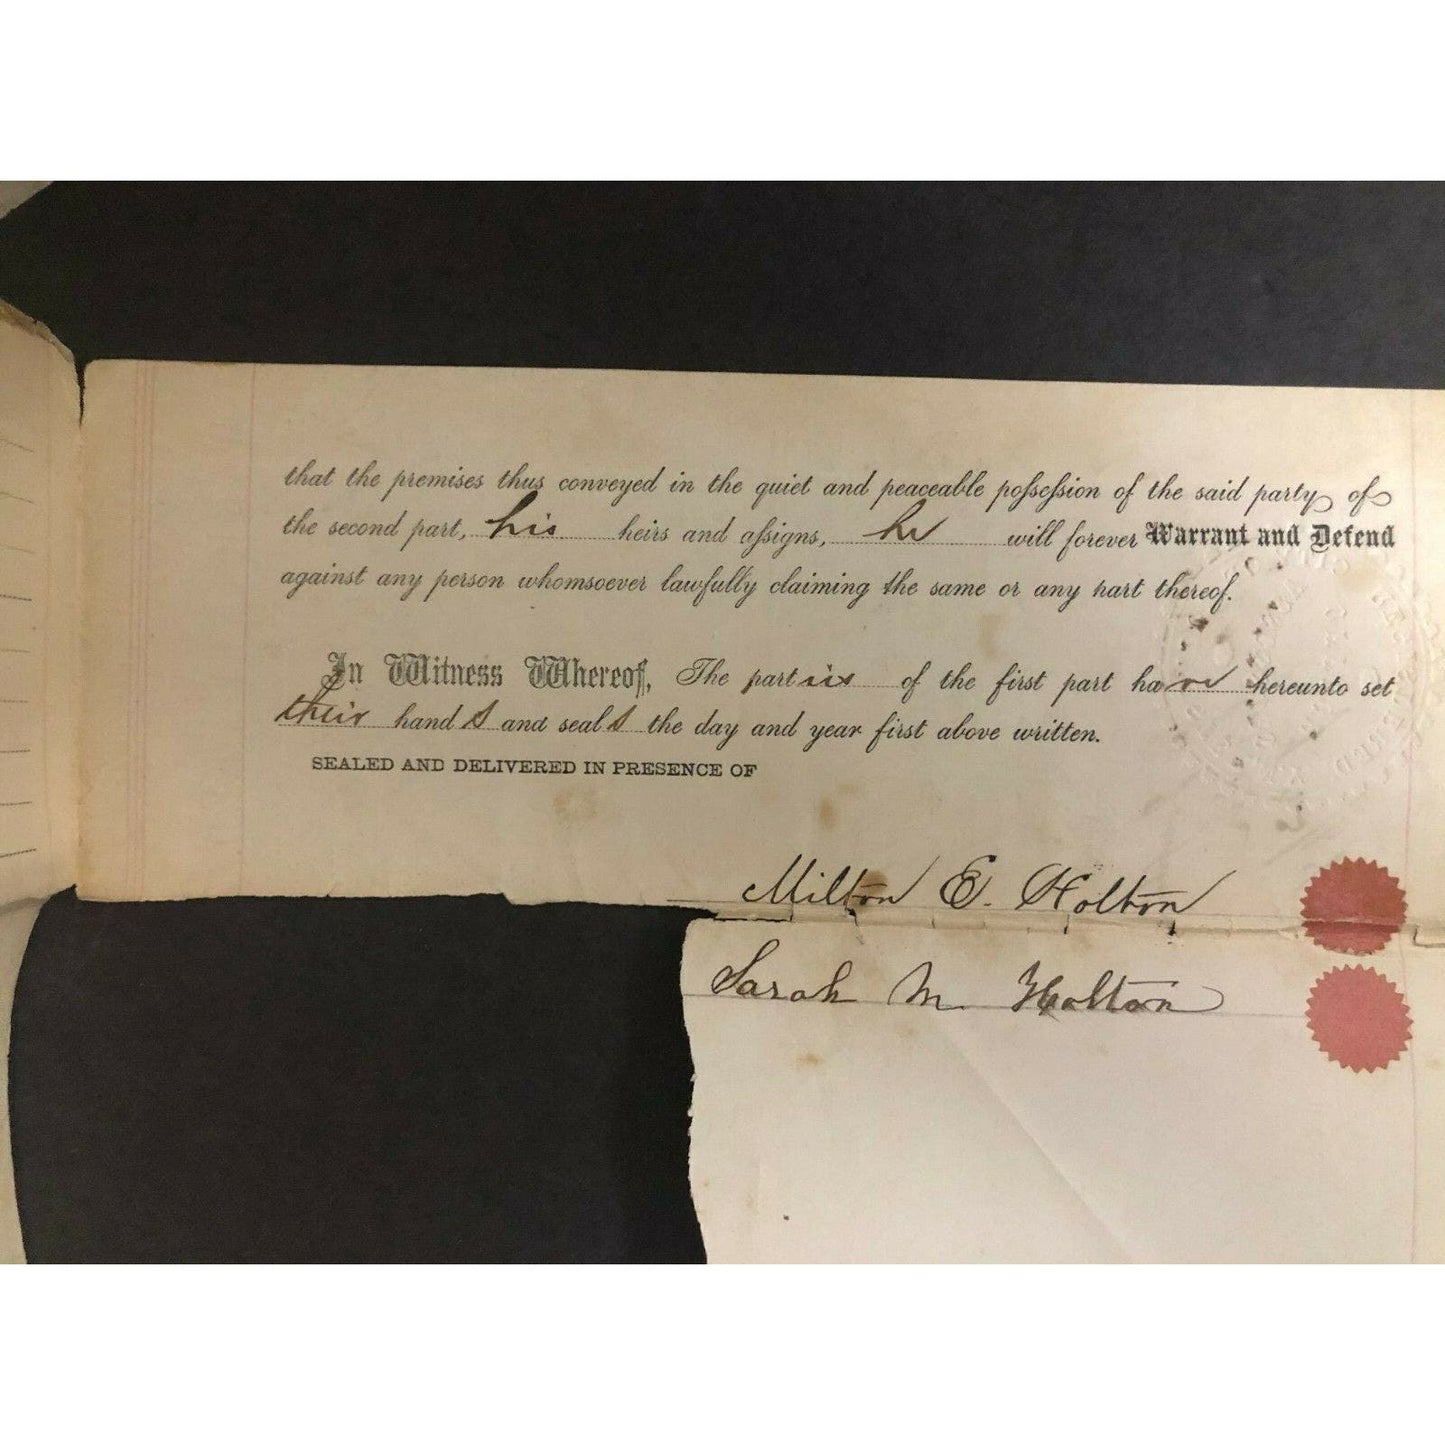 that the premises thus conveyed in the quiet and peaceable poſseſsion of the said party of
the second part, his heirs and aſsigns, he will forever Warrant and Defend
against any person whomsoever lawfully claiming the same or any part thereof.
In Witness Whereof, The parties of the first part have hereunto set
their hands and seals the day and year first above written.
SEALED AND DELIVERED IN PRESENCE OF
Milton E. Holton
Sarah M. Holton